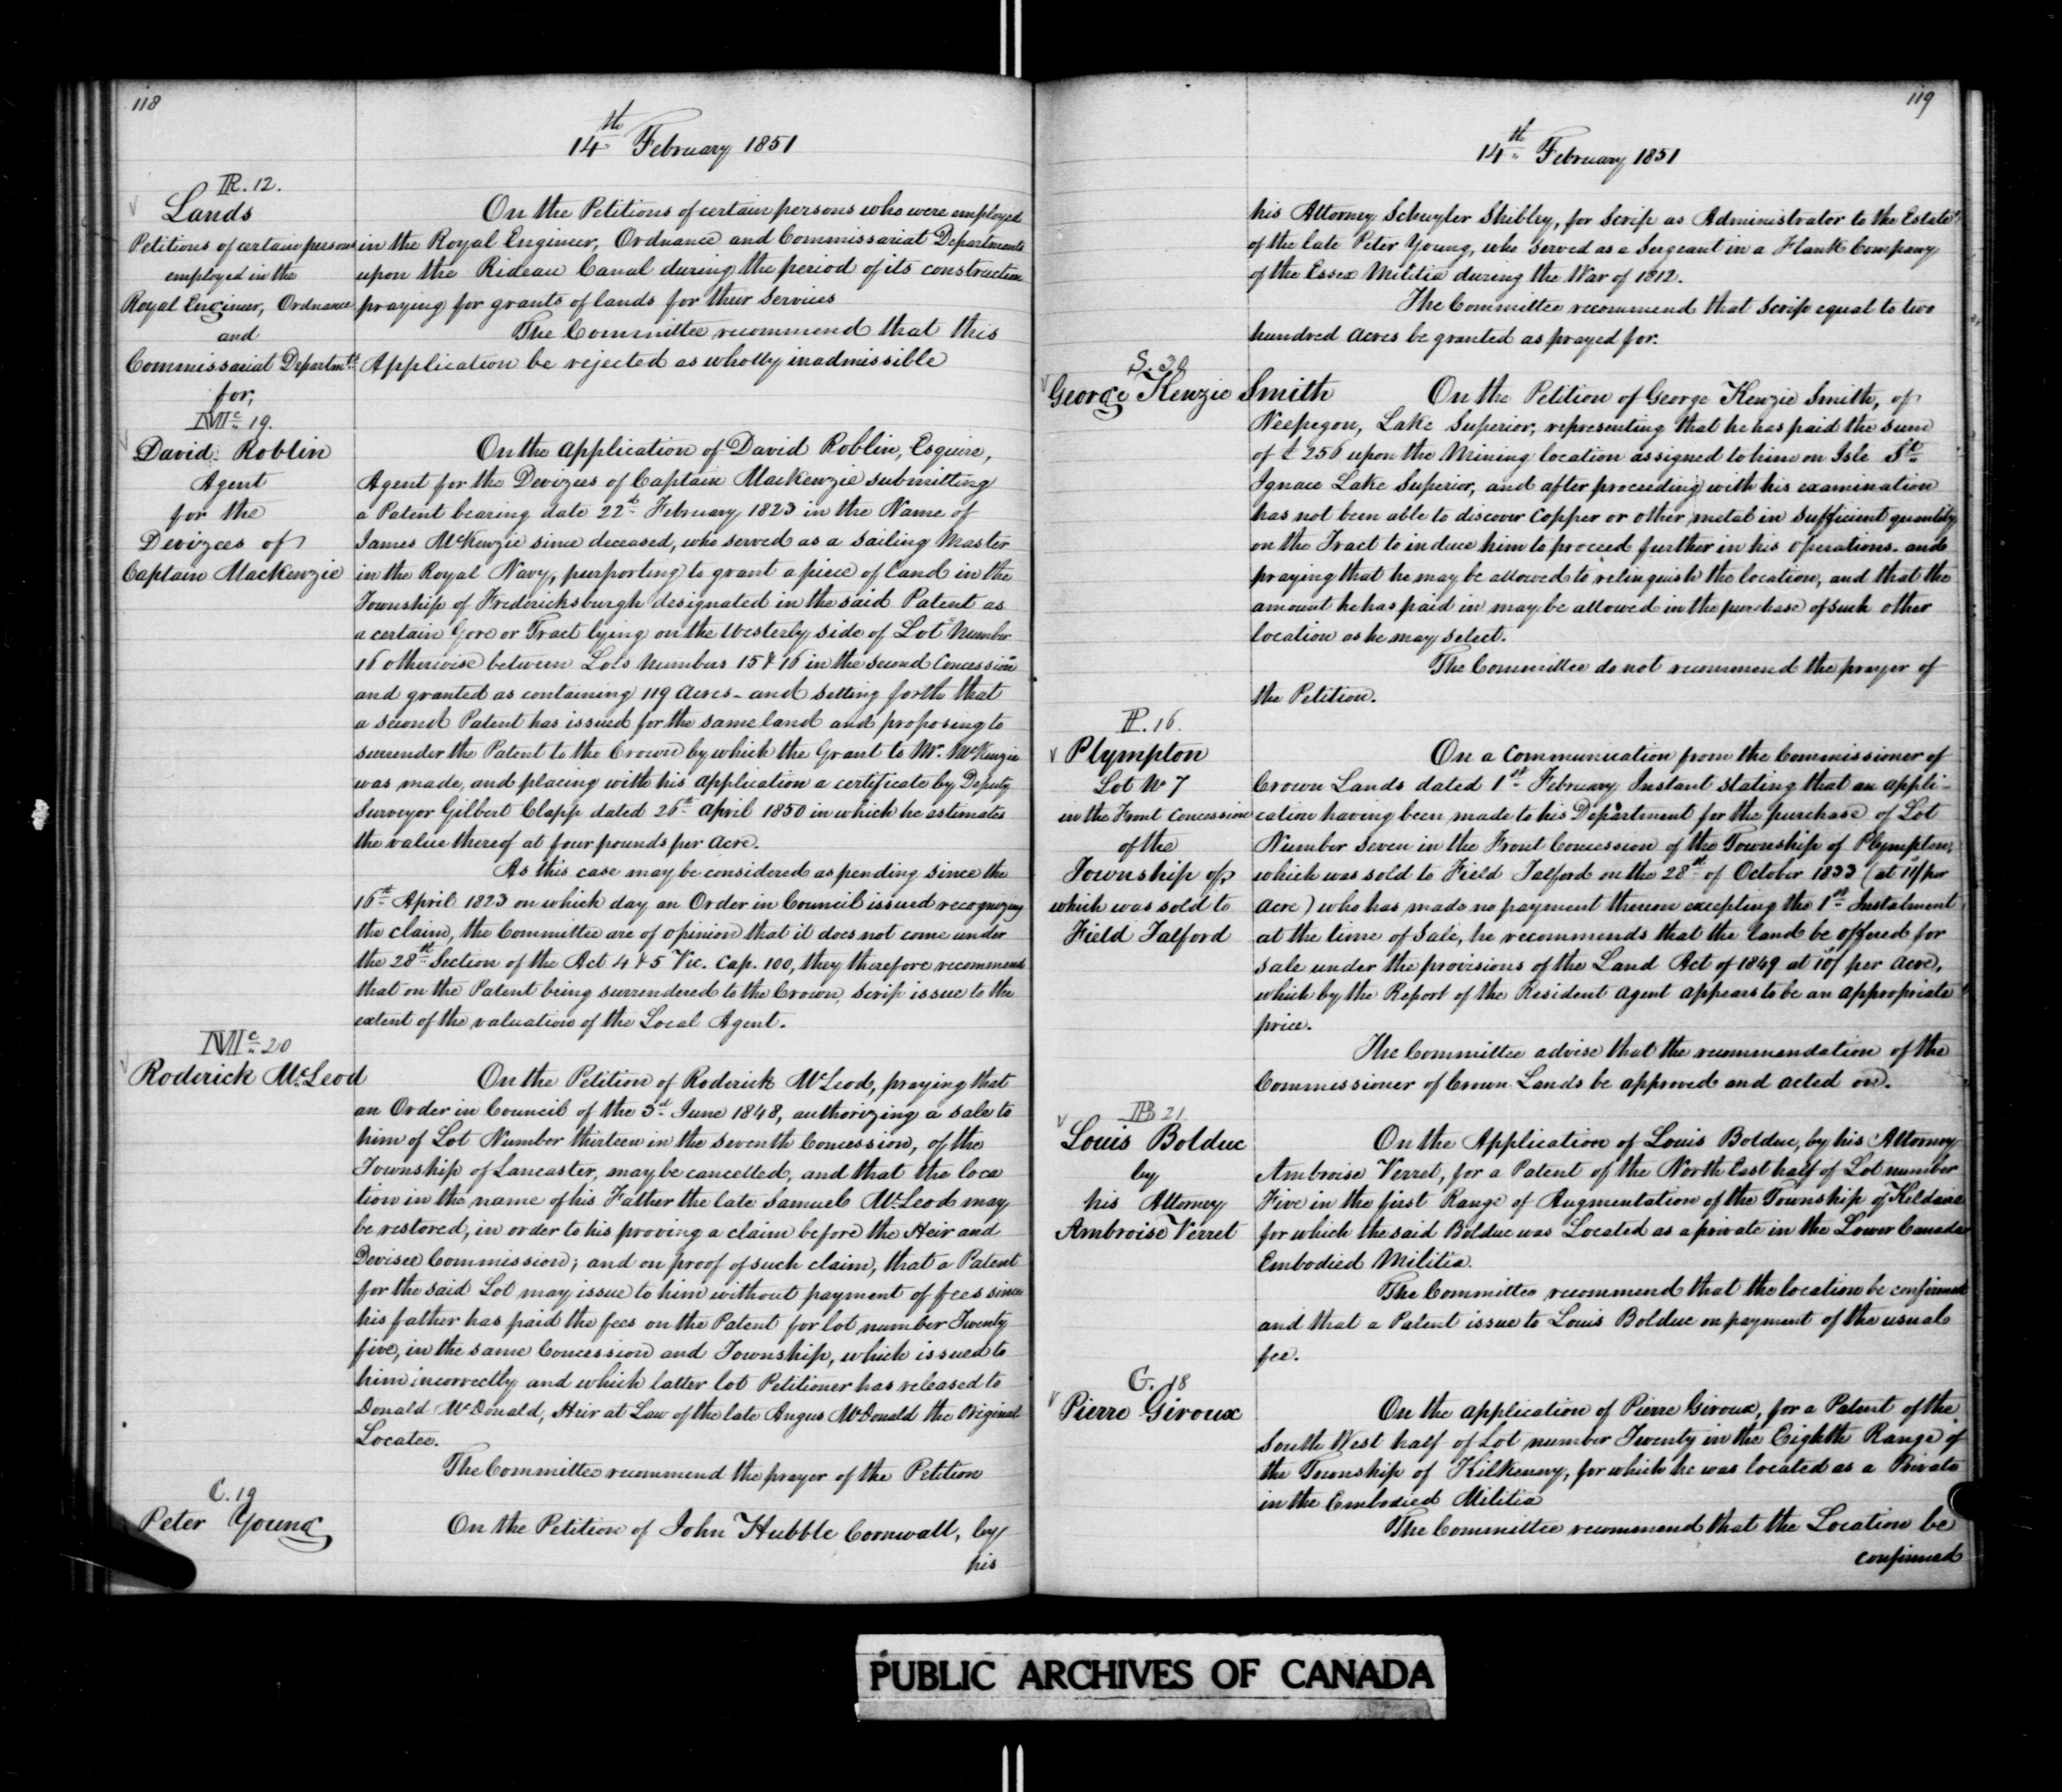 118
14th February 1851
R. 12.
Lands
Petitions of certain persons
employed in the
Royal Engineer, Ordnance
and
Commissariat Departmts
for,
On the Petitions of certain persons who were employed
in the Royal Engineer, Ordnance and Commissariat Departments
upon the Rideau Canal during the period of its construction
praying for grants of lands for their services
The Committee recommend that this
Application be rejected as wholly inadmissible
Mc 19.
David Roblin
Agent
for the
Devizees of
Captain Mackenzie
On the application of David Roblin, Esquire,
Agent for the Devizees of Captain Mackenzie submitting
a Patent bearing date 22d February 1823 in the Name of
James McKenzie since deceased, who served as a Sailing Master
in the Royal Navy, purporting to grant a piece of land in the
Township of Fredericksburgh designated in the said Patent as
a certain Gore or Tract lying on the Westerly side of Lot Number
16 otherwise between Lots Numbers 15 & 16 in the second Concession
and granted as containing 119 Acres - and setting forth that
a second Patent has issued for the same land and proposing to
surrender the Patent to the Crown by which the Grant to Mr. McKenzie
was made, and placing with his application a certificate by Deputy
Surveyor Gilbert Clapp dated 26th April 1850 in which he estimates
the value thereof at four pounds per Acre.
As this case may be considered as pending since the
16th April 1823 on which day an Order in Council issued recognizing
the claim, the Committee are of opinion that it does not come under
the 28th Section of the Act 4 & 5 Vic. Cap. 100, they therefore recommend
that on the Patent being surrendered to the Crown, Scrip issue to the
extent of the valuation of the Local Agent.
Mc 20
Roderick McLeod
On the Petition of Roderick McLeod, praying that
an Order in Council of the 3d June 1848, authorizing a sale to
him of Lot Number thirteen in the seventh Concession, of the
Township of Lancaster, may be cancelled, and that the loca
tion in the name of his Father the late Samuel McLeod may
be restored, in order to his proving a claim before the Heir and
Devisee Commission; and on proof of such claim, that a Patent
for the said Lot may issue to him without payment of fees since
his father has paid the fees on the Patent for lot number Twenty
five, in the same Concession and Township, which issued to
him incorrectly and which latter lot Petitioner has released to
Donald McDonald, Heir at Law of the late Angus McDonald the Original
Locatee.
The Committee recommend the prayer of the Petition
C. 19
Peter Young
On the Petition of John Hubble Cornwall, by
his
119
14th February 1851
his Attorney Schuyler Shibley, for Scrip as Administrator to the Estate
of the late Peter Young, who served as a Sergeant in a Flank Company
of the Essex Militia during the War of 1812.
The Committee recommend that Scrip equal to two
hundred acres be granted as prayed for.
George Kenzie Smith
On the Petition of George Kenzie Smith, of
Neepegon, Lake Superior, representing that he has paid the sum
of £256 upon the Mining location assigned to him on Isle St.
Ignace Lake Superior, and after proceeding with his examination
has not been able to discover Copper or other metal in sufficient quantity
on the Tract to induce him to proceed further in his operations. and
praying that he may be allowed to relinquish the location, and that the
amount he has paid in may be allowed in the purchase of such other
location as he may select.
The Committee do not recommend the prayer of
the Petition.
P. 16.
Plympton
Lot No 7
in the Front Concession
of the
Township of,
which was sold to
Field Talford
On a communication from the Commissioner of
Crown Lands dated 1st February Instant stating that an appli-
cation having been made to his Department for the purchase of Lot
Number Seven in the Front Concession of the Township of Plympton,
which was sold to Field Talford on the 28th of October 1833 (at 11/ per
Acre) who has made no payment thereon excepting the 1st Instalment
at the time of Sale, he recommends that the land be offered for
sale under the provisions of the Land Act of 1849 at 10/ per Acre,
which by the Report of the Resident Agent appears to be an appropriate
price.
The Committee advise that the recommendation of the
Commissioner of Crown Lands be approved and acted on.
B 21.
Louis Bolduc
by
his Attorney
Ambroise Verret
On the Application of Louis Bolduc, by his Attorney
Ambroise Verret, for a Patent of the North East half of Lot number
Five in the first Range of Augmentation of the Township of Kildaire
for which the said Bolduc was Located as a private in the Lower Canada
Embodied Militia.
The Committee recommend that the location be confirmed
and that a Patent issue to Louis Bolduc on payment of the usual
fee.
G. 18
Pierre Giroux
On the application of Pierre Giroux, for a Patent of the
South West half of Lot number Twenty in the Eighth Range of
the Township of Kilkenny, for which he was located as a Private
in the Embodied Militia
The Committee recommend that the Location be
confirmed
PUBLIC ARCHIVES OF CANADA